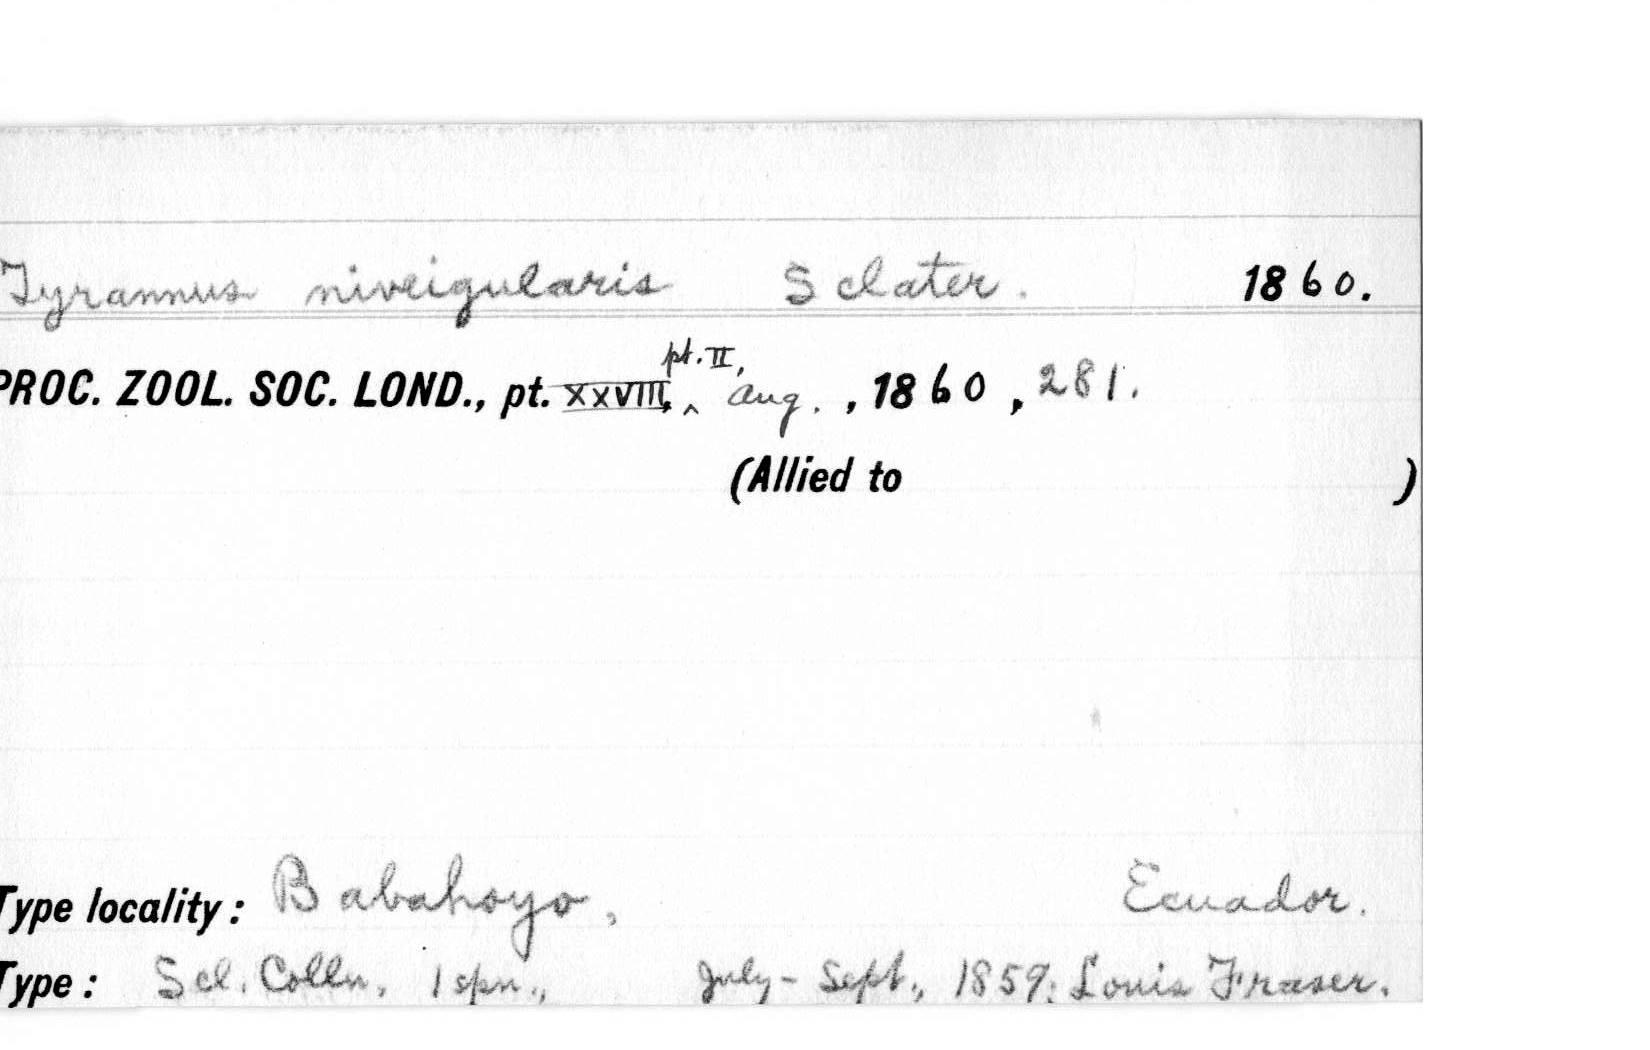 Tyrannus niveigularis Sclater. 1860.
pt. II,
PROC. ZOOL. SOC. LOND., pt. XXVIII, ^ Aug. , 1860 , 281.
(Allied to )
Type locality: Babahoyo, Ecuador.
Type: Scl. Colln, 1 spn., July - Sept., 1859; Louis Fraser.